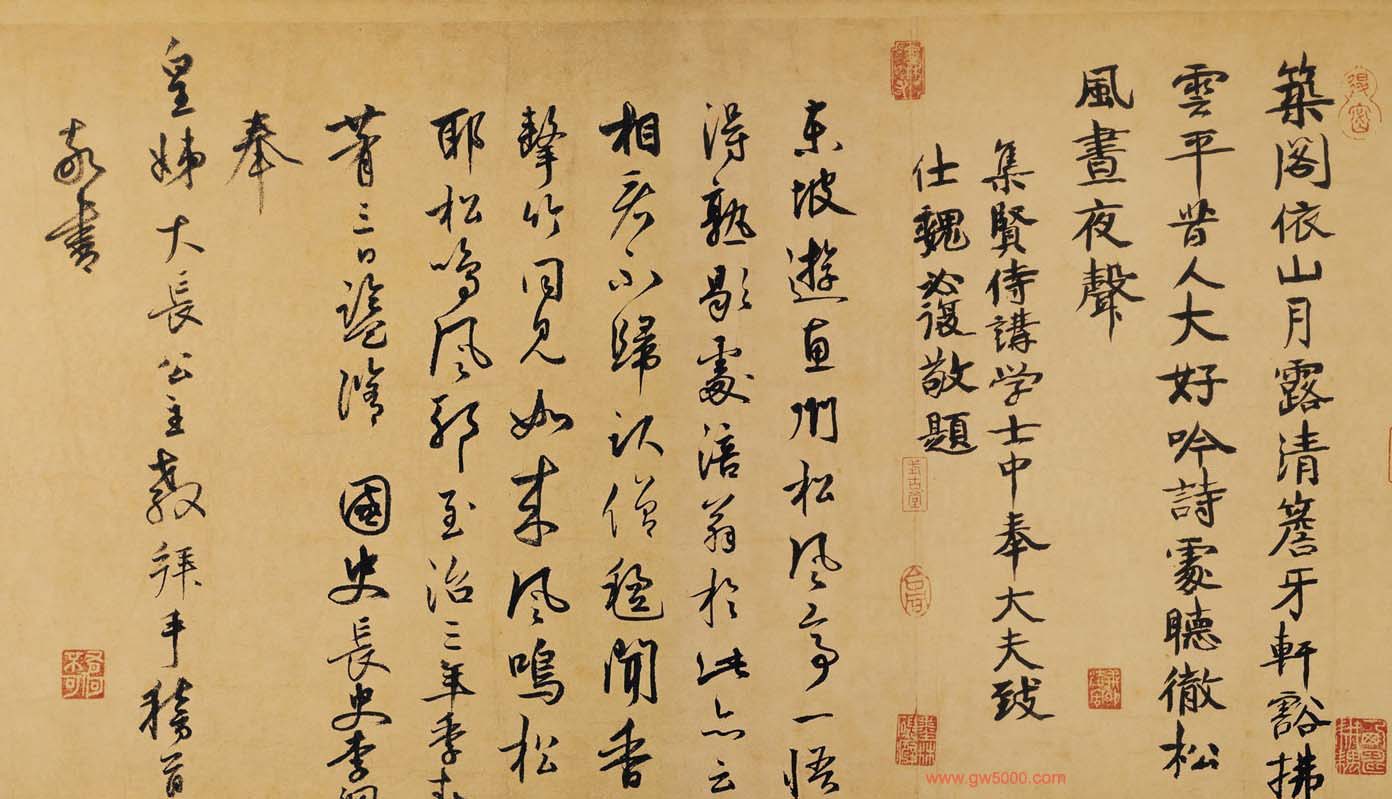 築閣依山月露清簷牙軒豁拂
雲平昔人大好吟詩處聽徹松
風晝夜聲
集賢侍講学士中奉大夫致
仕魏必復敬題
東坡遊惠州松風亭一悟
得熟歇處涪翁於此亦云
相君不歸卧僧穩聞香
擊竹同見如來風鳴松
耶松鳴風耶至治三年季春
蓂三日盥滌國史長史李
奉
皇姊大長公主教拜手稽首
敬書
www.gw5000.com